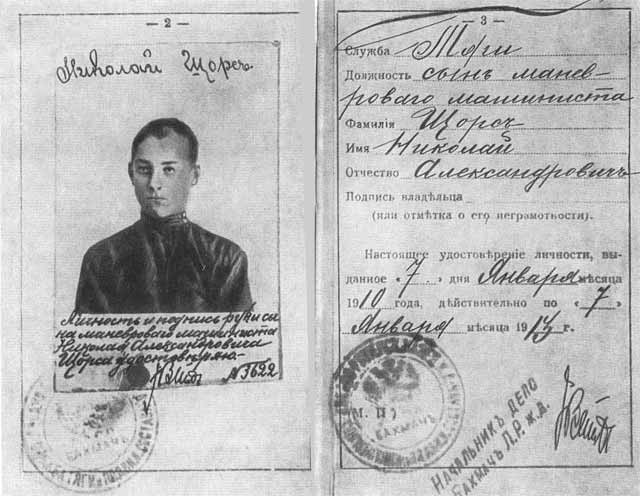 — 2 —
Николай Щорсъ
Личность и подпись руки сы
на маневроваго машиниста
Николая Александровича
Щорса удостовѣряю
№ 3622
БАХМАЧЪ
— 3 —
Служба Тяги
Должность сынъ манев-
роваго машиниста
Фамилія Щорсъ
Имя Николай
Отчество Александровичъ
Подпись владѣльца
(или отмѣтка о его неграмотности).
Настоящее удостовѣреніе личности, вы-
данное «7» дня Января мѣсяца
1910 года, дѣйствительно по «7»
Января мѣсяца 1913 г.
(М. П.)
БАХМАЧЪ
НАЧАЛЬНИКЪ ДЕПО
БАХМАЧЪ Л.Р. Ж.Д.